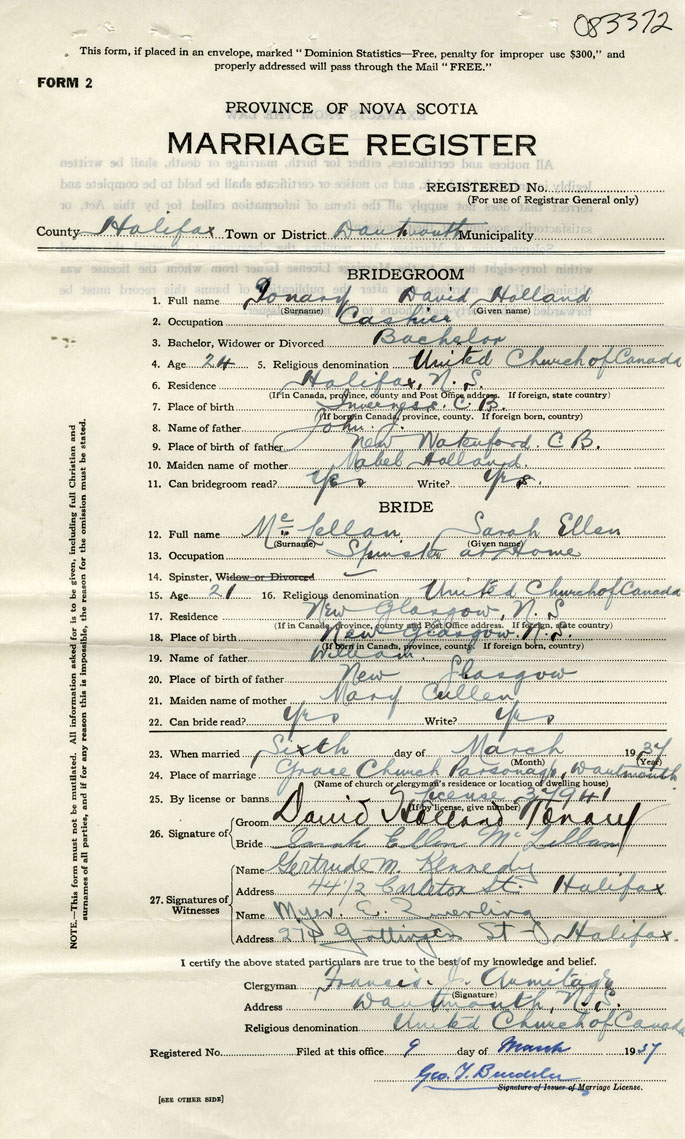 083372
This form, if placed in an envelope, marked "Dominion Statistics—Free, penalty for improper use $300," and
properly addressed will pass through the Mail "FREE."
FORM 2
PROVINCE OF NOVA SCOTIA
MARRIAGE REGISTER
REGISTERED No.
(For use of Registrar General only)
County Halifax Town or District Dartmouth Municipality
BRIDEGROOM
1. Full name David Holland
(Surname) (Given name)
2. Occupation Cashier
3. Bachelor, Widower or Divorced Bachelor
4. Age 24 5. Religious denomination United Church of Canada
6. Residence Halifax, N. S.
(If in Canada, province, county and Post Office address. If foreign, state country)
7. Place of birth Inverness. C. B.
(If born in Canada, province, county. If foreign born, country)
8. Name of father John. J.
9. Place of birth of father New Waterford. C B.
10. Maiden name of mother Mabel Holland
11. Can bridegroom read? Yes Write? Yes.
BRIDE
12. Full name McLellan Sarah Ellen
(Surname) (Given name)
13. Occupation Spinster at Home
14. Spinster, Widow or Divorced
15. Age 21 16. Religious denomination United Church of Canada
17. Residence New Glasgow, N. S
(If in Canada, province, county and Post Office address. If foreign, state country)
18. Place of birth New Glasgow. N. S.
(If born in Canada, province, county. If foreign born, country)
19. Name of father William.
20. Place of birth of father New Glasgow
21. Maiden name of mother Mary Cullen
22. Can bride read? Yes Write? Yes
23. When married Sixth day of March 1937
(Month) (Year)
24. Place of marriage Grace Church Parsonage, Dartmouth
(Name of church or clergyman's residence or location of dwelling house)
25. By license or banns License 37941
(If by license, give number)
26. Signature of
Groom David Holland
Bride Sarah Ellen McLellan
27. Signatures of Witnesses
Name Gertrude M. Kennedy
Address 44 1/2 Carleton St. Halifax
Name Myer. C. Zwerling
Address Gottingen St Halifax.
I certify the above stated particulars are true to the best of my knowledge and belief.
Clergyman Francis. J. Armitage
(Signature)
Address Dartmouth, N. S.
Religious denomination United Church of Canada
Registered No. Filed at this office 9 day of March 1937
Geo. T.
Signature of Issuer of Marriage License.
[SEE OTHER SIDE]
NOTE.—This form must not be mutilated. All information asked for is to be given, including full Christian and
surnames of all parties, and if for any reason this is impossible, the reason for the omission must be stated.